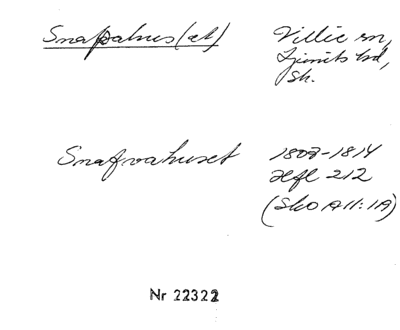 Snapahus(et) Villie sn,
Ljunits hd,
Sk.
Snafvahuset 1808-1814
Hfl 212
(Sko AII:1A)
Nr 22322